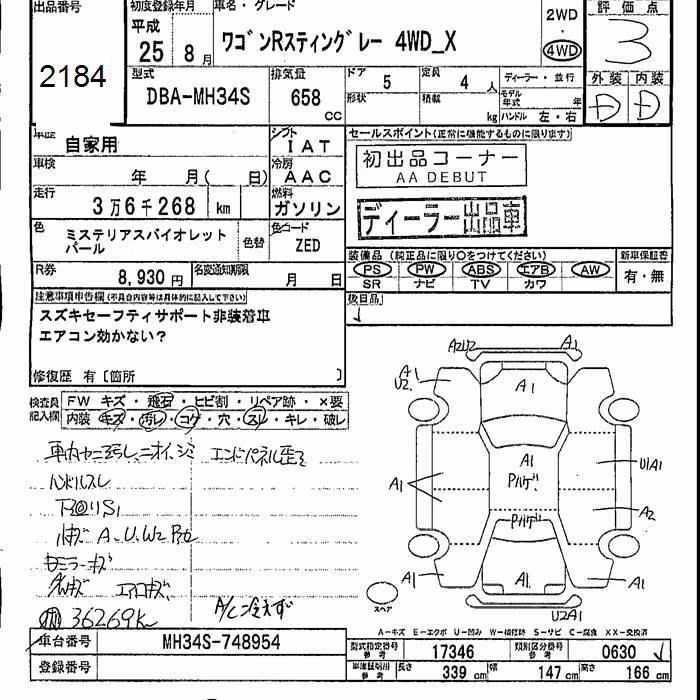 出品番号
2184
初度登録年月
平成
25 8月
車名・グレード
ワゴンRスティングレー 4WD_X
2WD
4WD
評価点
3
外装 内装
D D
型式
DBA-MH34S
排気量
658 CC
ドア
5
形状
定員
4 人
積載
kg
ディーラー・並行
モデル年式 年
ハンドル 左・右
車歴
自家用
シフト
IAT
車検
年 月( 日)
冷房
AAC
走行
3万6千268 km
燃料
ガソリン
色
ミステリアスバイオレットパール
色替
色コード
ZED
R券
8,930円
名変通知期限
月 日
セールスポイント(正常に機能するものに限ります)
初出品コーナー
AA DEBUT
ディーラー出品車
装備品 (純正品に限り〇をつけてください)
新車保証書
PS PW ABS エアB AW
SR ナビ TV カワ
有・無
後日品
注意事項申告欄(不具合内容等は具体的に記入して下さい)
スズキセーフティサポート非装着車
エアコン効かない?
修復歴 有〔箇所 〕
検査員記入欄
FW キズ・飛石・ヒビ割・リペア跡・×要
内装 キズ・汚レ・コゲ・穴・スレ・キレ・破レ
車内セニ汚レニオイ、シミ
エンドパネル歪ミ
ハンドルスレ
キズ A.U.W2
ミラーキズ
エアロキズ
A/C冷えず
36269km
A2U2
A1
A1
U2
A1
A1
Pハゲ
Pハゲ
A1
A1
U1A1
A2
A1
A1
U2A1
スペア
A-キズ E-エクボ U-凹み W-補修跡 S-サビ C-腐食 XX-交換済
車台番号
MH34S-748954
登録番号
型式指定番号
参考
17346
類別区分番号
参考
0630
車庫証明用
参考
長さ
339 cm
幅
147 cm
高さ
166 cm